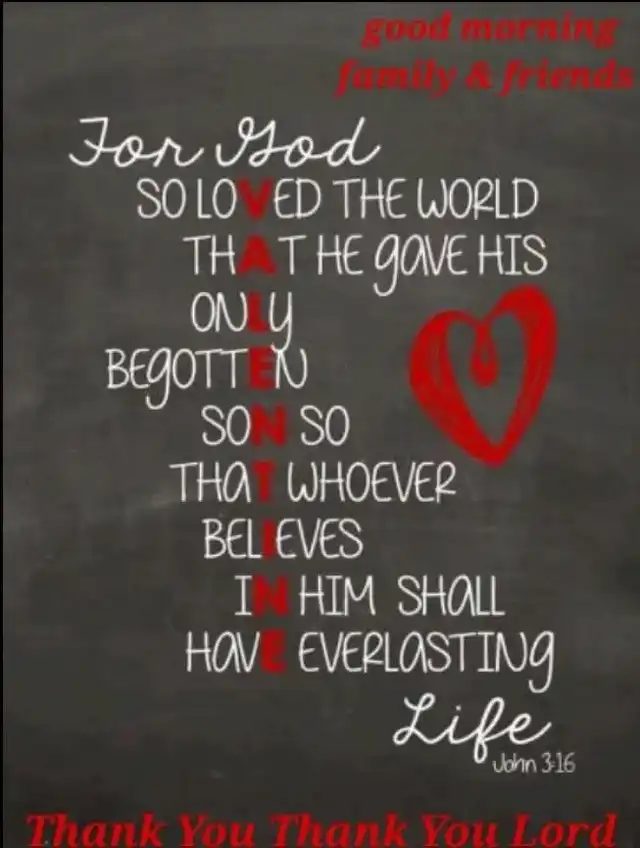 good morning
family & friends
For God
SO LOVED THE WORLD
THAT HE gAVE HIS
ONLY
BEgOTTEN
SON SO
THAT WHOEVER
BELIEVES
IN HIM SHALL
HAVE EVERLASTINg
Life
John 3:16
Thank You Thank You Lord